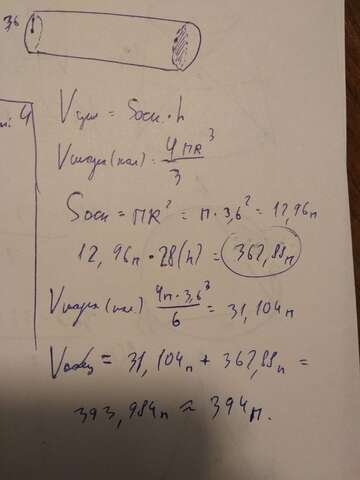 3,6
V цил = Sосн · h
V шара (пол) = 4πR³/3
Sосн = πR² = π · 3,6² = 12,96π
12,96π · 28(h) = 362,88π
V шара (пол.) 4π · 3,6³/6 = 31,104π
Vобщ = 31,104π + 362,88π =
393,984π ≈ 394π.